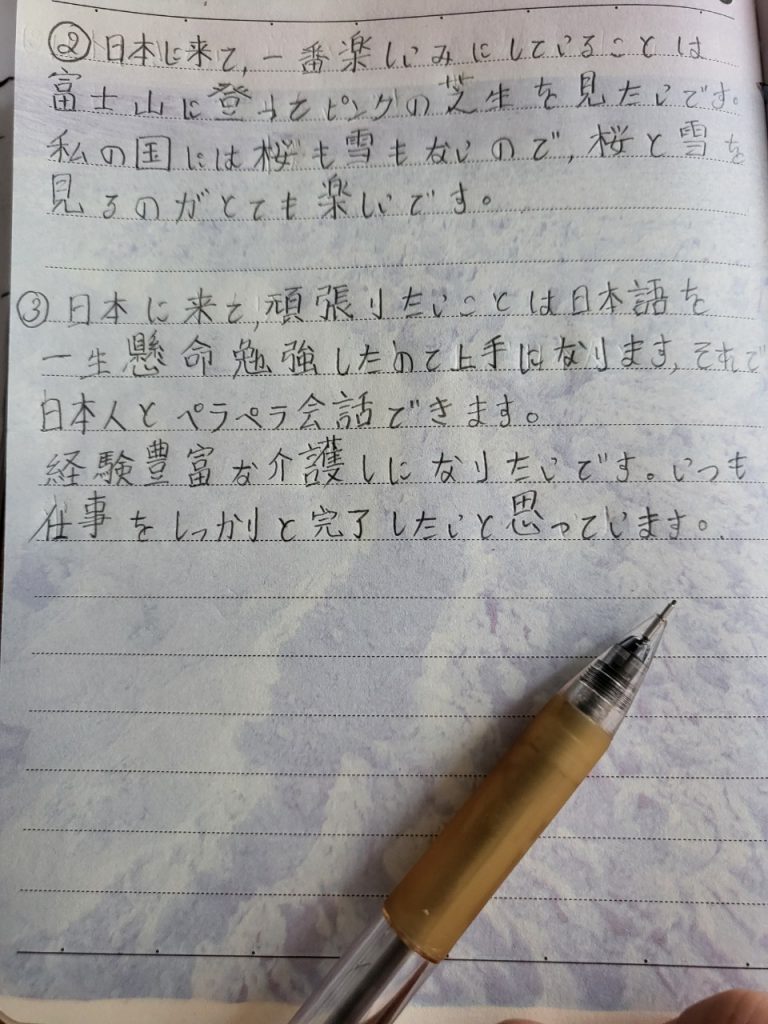 ② 日本に来て、一番楽しいみにしていることは
富士山に登ってピンクの芝生を見たいです。
私の国には桜も雪もないので、桜と雪を
見るのがとても楽しいです。
③ 日本に来て、頑張りたいことは日本語を
一生懸命勉強したので上手になります、それで
日本人とペラペラ会話できます。
経験豊富な介護しになりたいです。いつも
仕事をしっかりと完了したいと思っています。